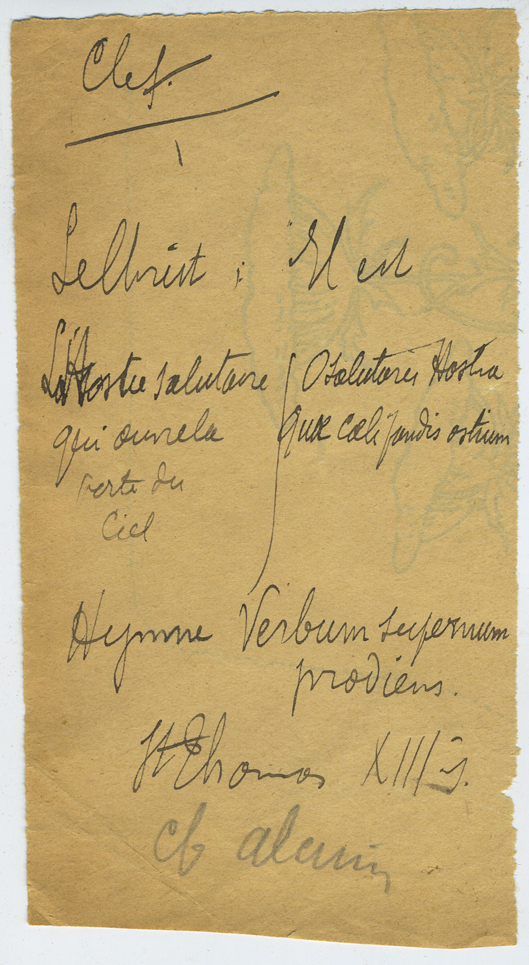 Clef.
Le Christ : Il est
L'Hostie salutaire
qui ouvre la
porte du
Ciel
O Salutaris Hostia
Quæ cæli pandis ostium
Hymne Verbum supernum
prodiens.
St Thomas XIII s.
cf alcuin